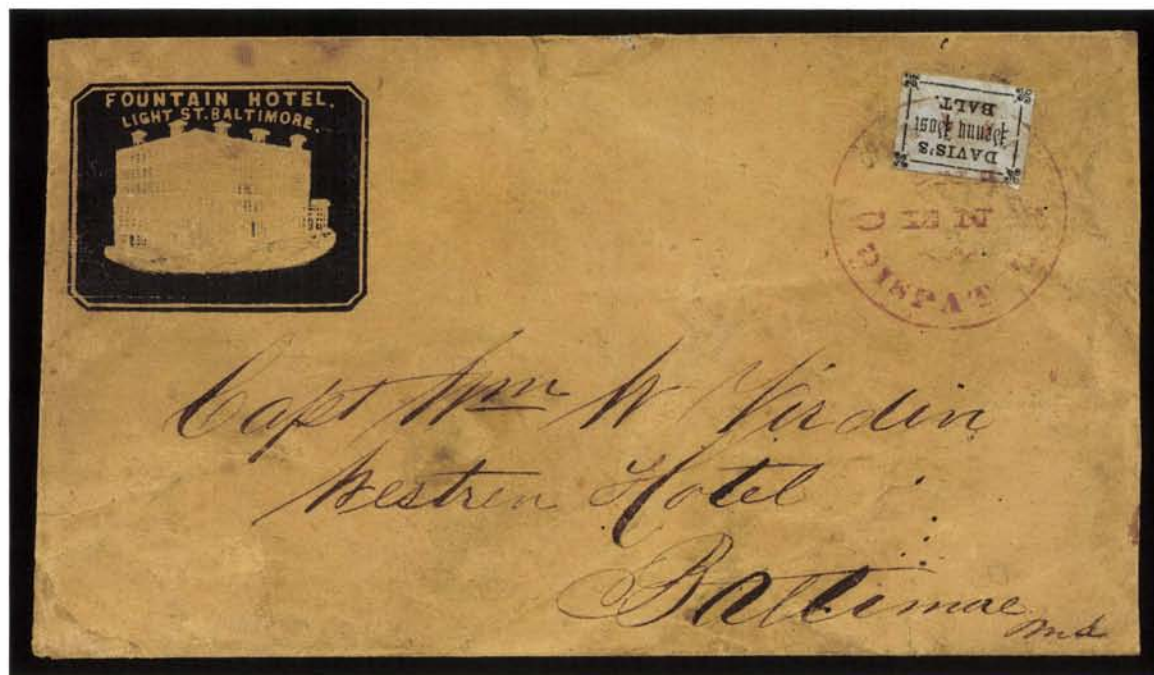 FOUNTAIN HOTEL.
LIGHT ST. BALTIMORE.
DAVIS'S
Penny Post
BALT.
DISPAT
Capt Wm W Virdin
Westren Hotel
Baltimore
Md